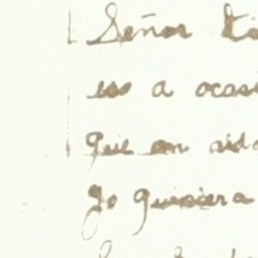 Señor
eso a ocasi
que an sido
Jo quisiera